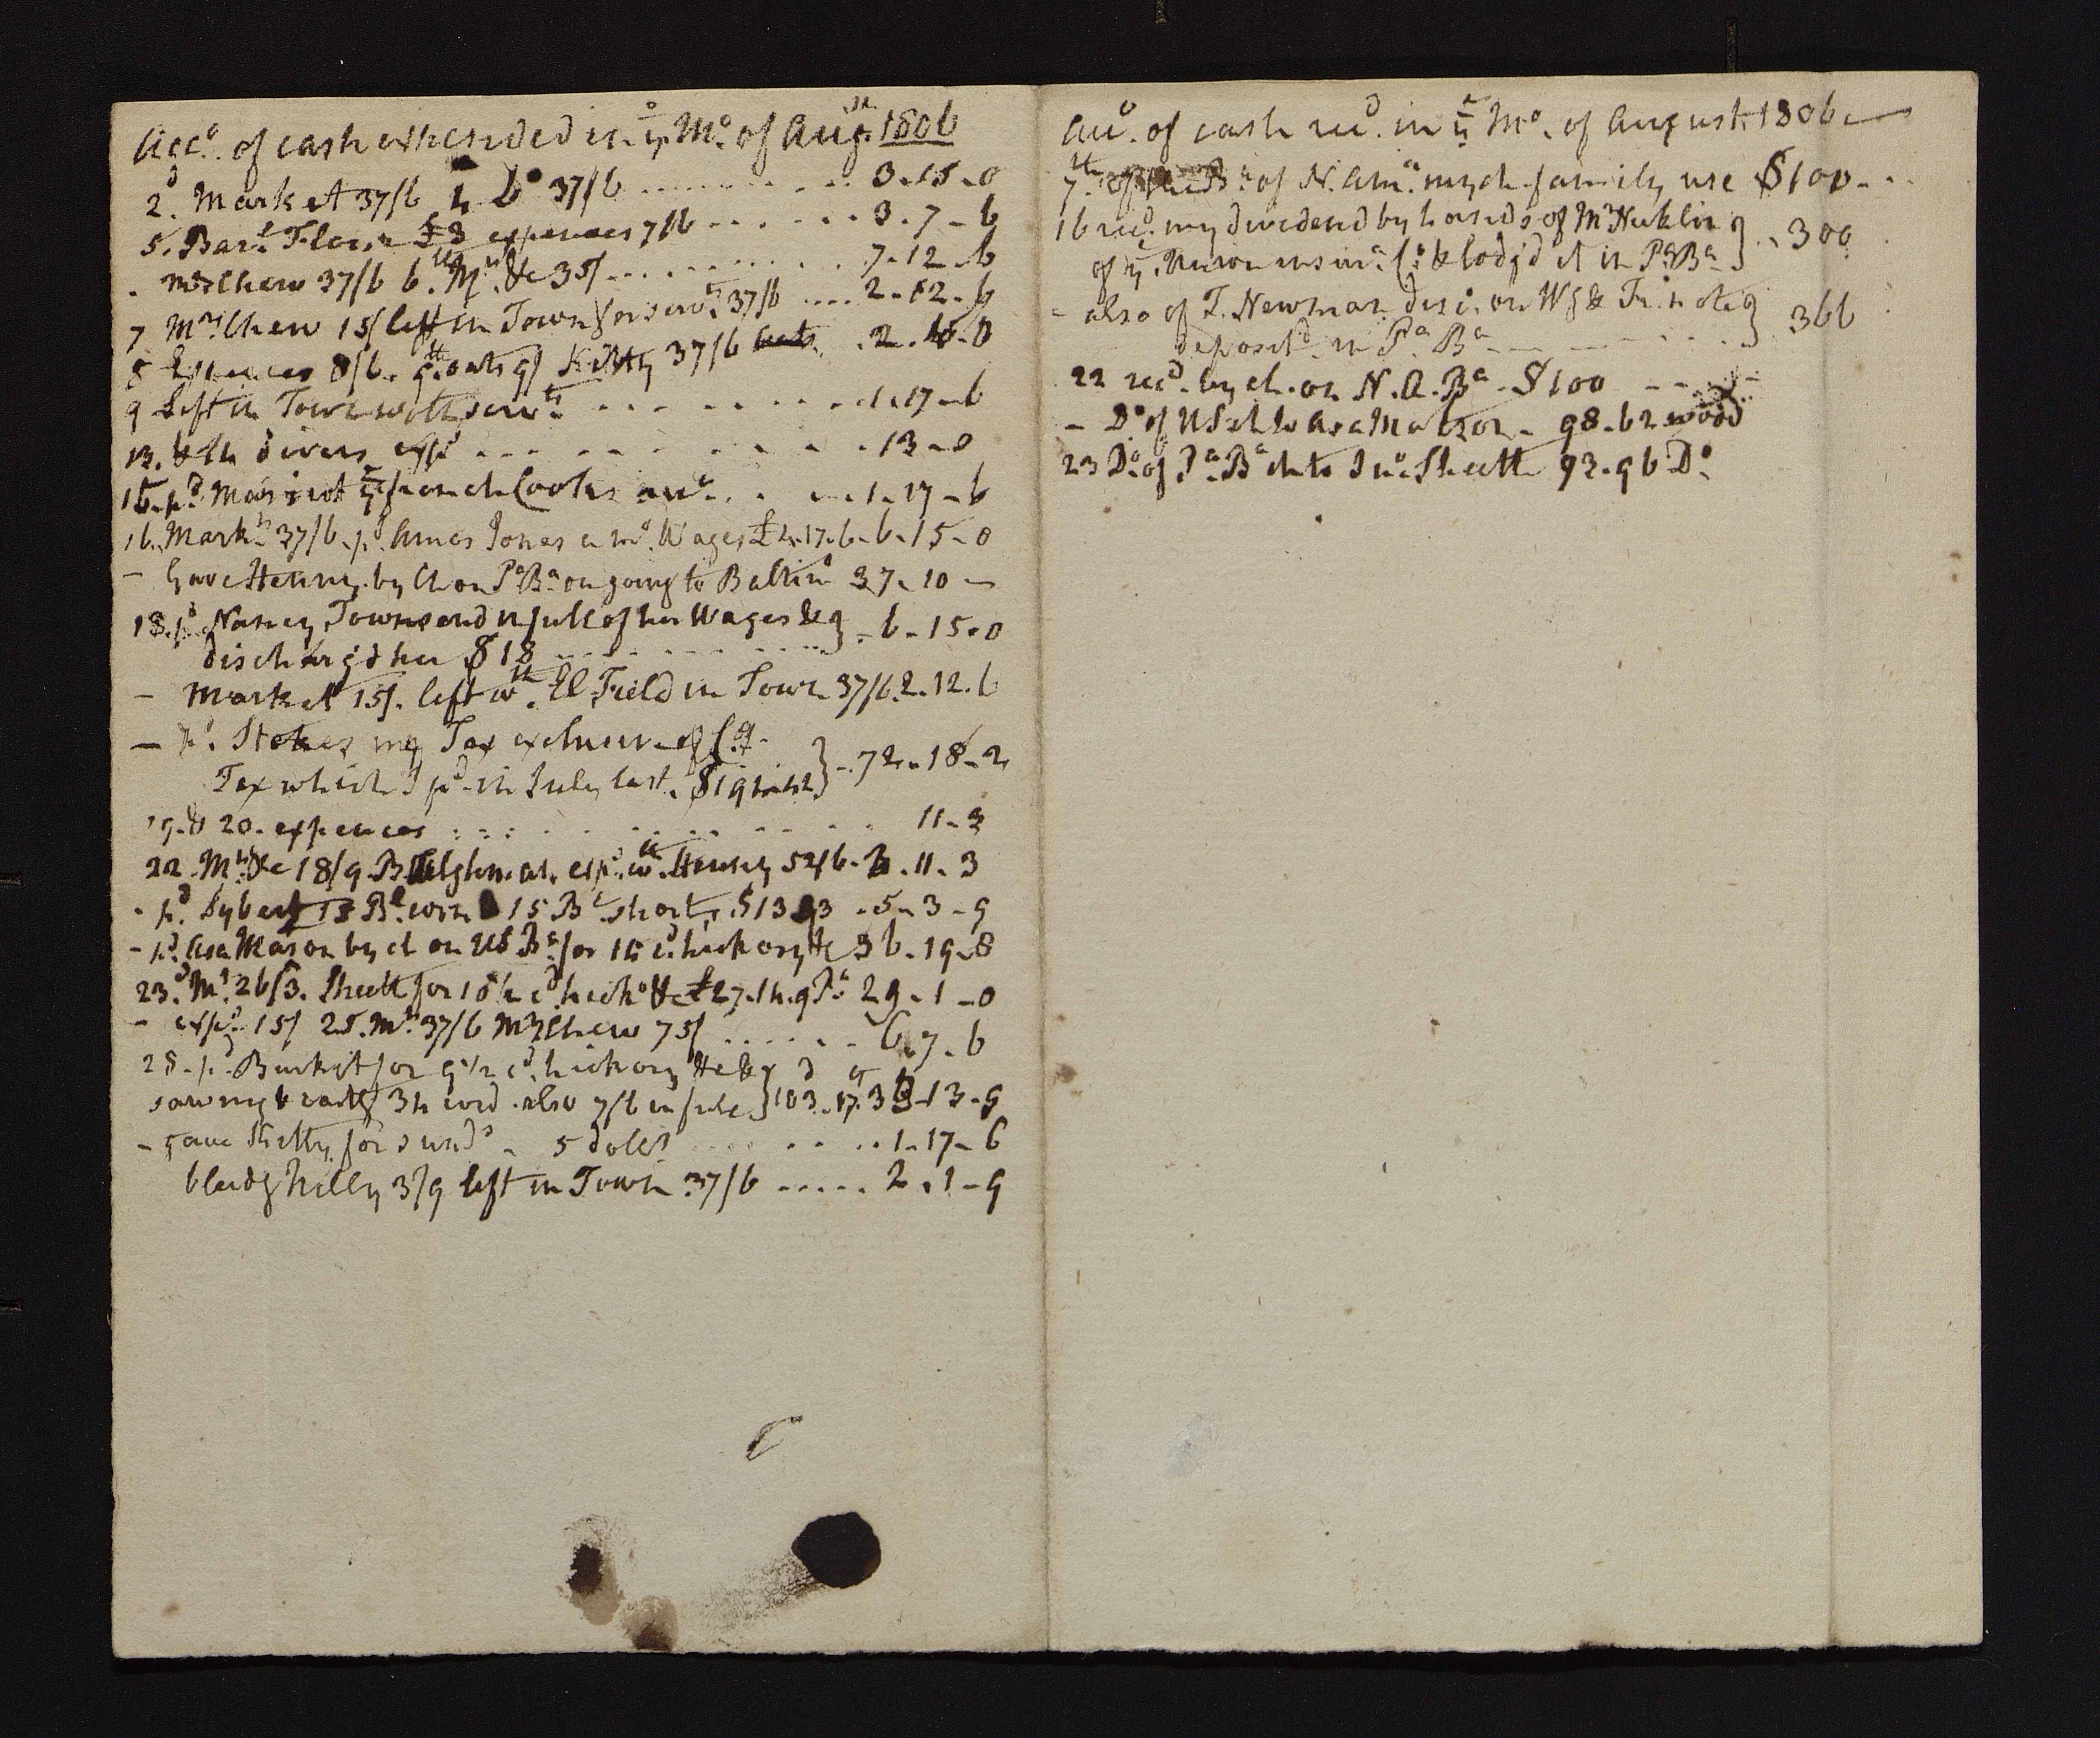 Acc.o of cash expended in ye Mo. of Augst 1806
2d. Market 37/6 Do 37/6 ........... 3-15-0
5. Barl. Flour £3 expences 7/6 ...... 3-7-6
- Mrs Chew 37/6 6th Mt. &c 35/ .......... 7-12-6
7 Mrs Chew 15/ left in Town for servts 37/6 .... 2-12-6
8 Expences 8/6. oats 9/ Kitty 37/6 2-
9 Left in Town with servts ......... 1-17-6
13. &14 divers exps ......... 13-0
15. pd. ye french Cooks acct. . . 1-17-6
16. Markt 37/6. pd. Amos Jones a mo. Wages £4.17.6-6-15-0
- Gave Henny by Ch on Pa Ba on going to Baltimo 37-10 -
18. pd Nancy Townsend in full of her Wages &
discharg'd her $18 ......... } - 6-15-0
- Market 15/. left wth. El Field in Town 37/6. 2-12-6
- pd. Stokes my Tax exclusive of
Tax which I pd. in July last. } -72-18-2
19. & 20. expences ......... 11-3
22. Mt. &c 18/9. B Tilghman exps. wth. Henny 52/6. 3-11-3
- pd. Sybert 13 Bl. corn 15 Bl. shorts - 5-3-9
- pd. Asa Mason by ch on US Ba. for cd. hickory &c 36-19-8
23d. Mt. 26/3. Sheett for cd. hicko. &c £27.14.9 29-1-0
- exps. 15/ 25. Mt. 37/6 Mrs Chew 75/ ...... 6-7-6
28. pd. Burket for 9 1/2 cd. hickory &c &
sawing & cartg 34 cord also 7/6 in full } 103.17. -13-9
- gave Kitty for sunds - 5 dolls ...... 1-17-6
bleedg Kelly 3/9 left in Town 37/6 ..... 2-1-9
Acco. of cash recd. in ye Mo. of August 1806
7th. of ye Ba. of N. Ama. my ch family use $100 - -
16 recd. my dividend by hands of Mr Nicklin
of ye Union insure. Co. & lodg'd it in Pa Ba } - 300
- also of T. Newman disc. on Ws & Fr. note
deposited in Pa. Ba. ......... } 366
22 recd. by ch. on N.A. Ba - $100 - - - -
- Do of US ch to Asa Mason - 98-62 wood
23 Do. of Pa. Ba ch to Jno. Sheett 92.96 Do